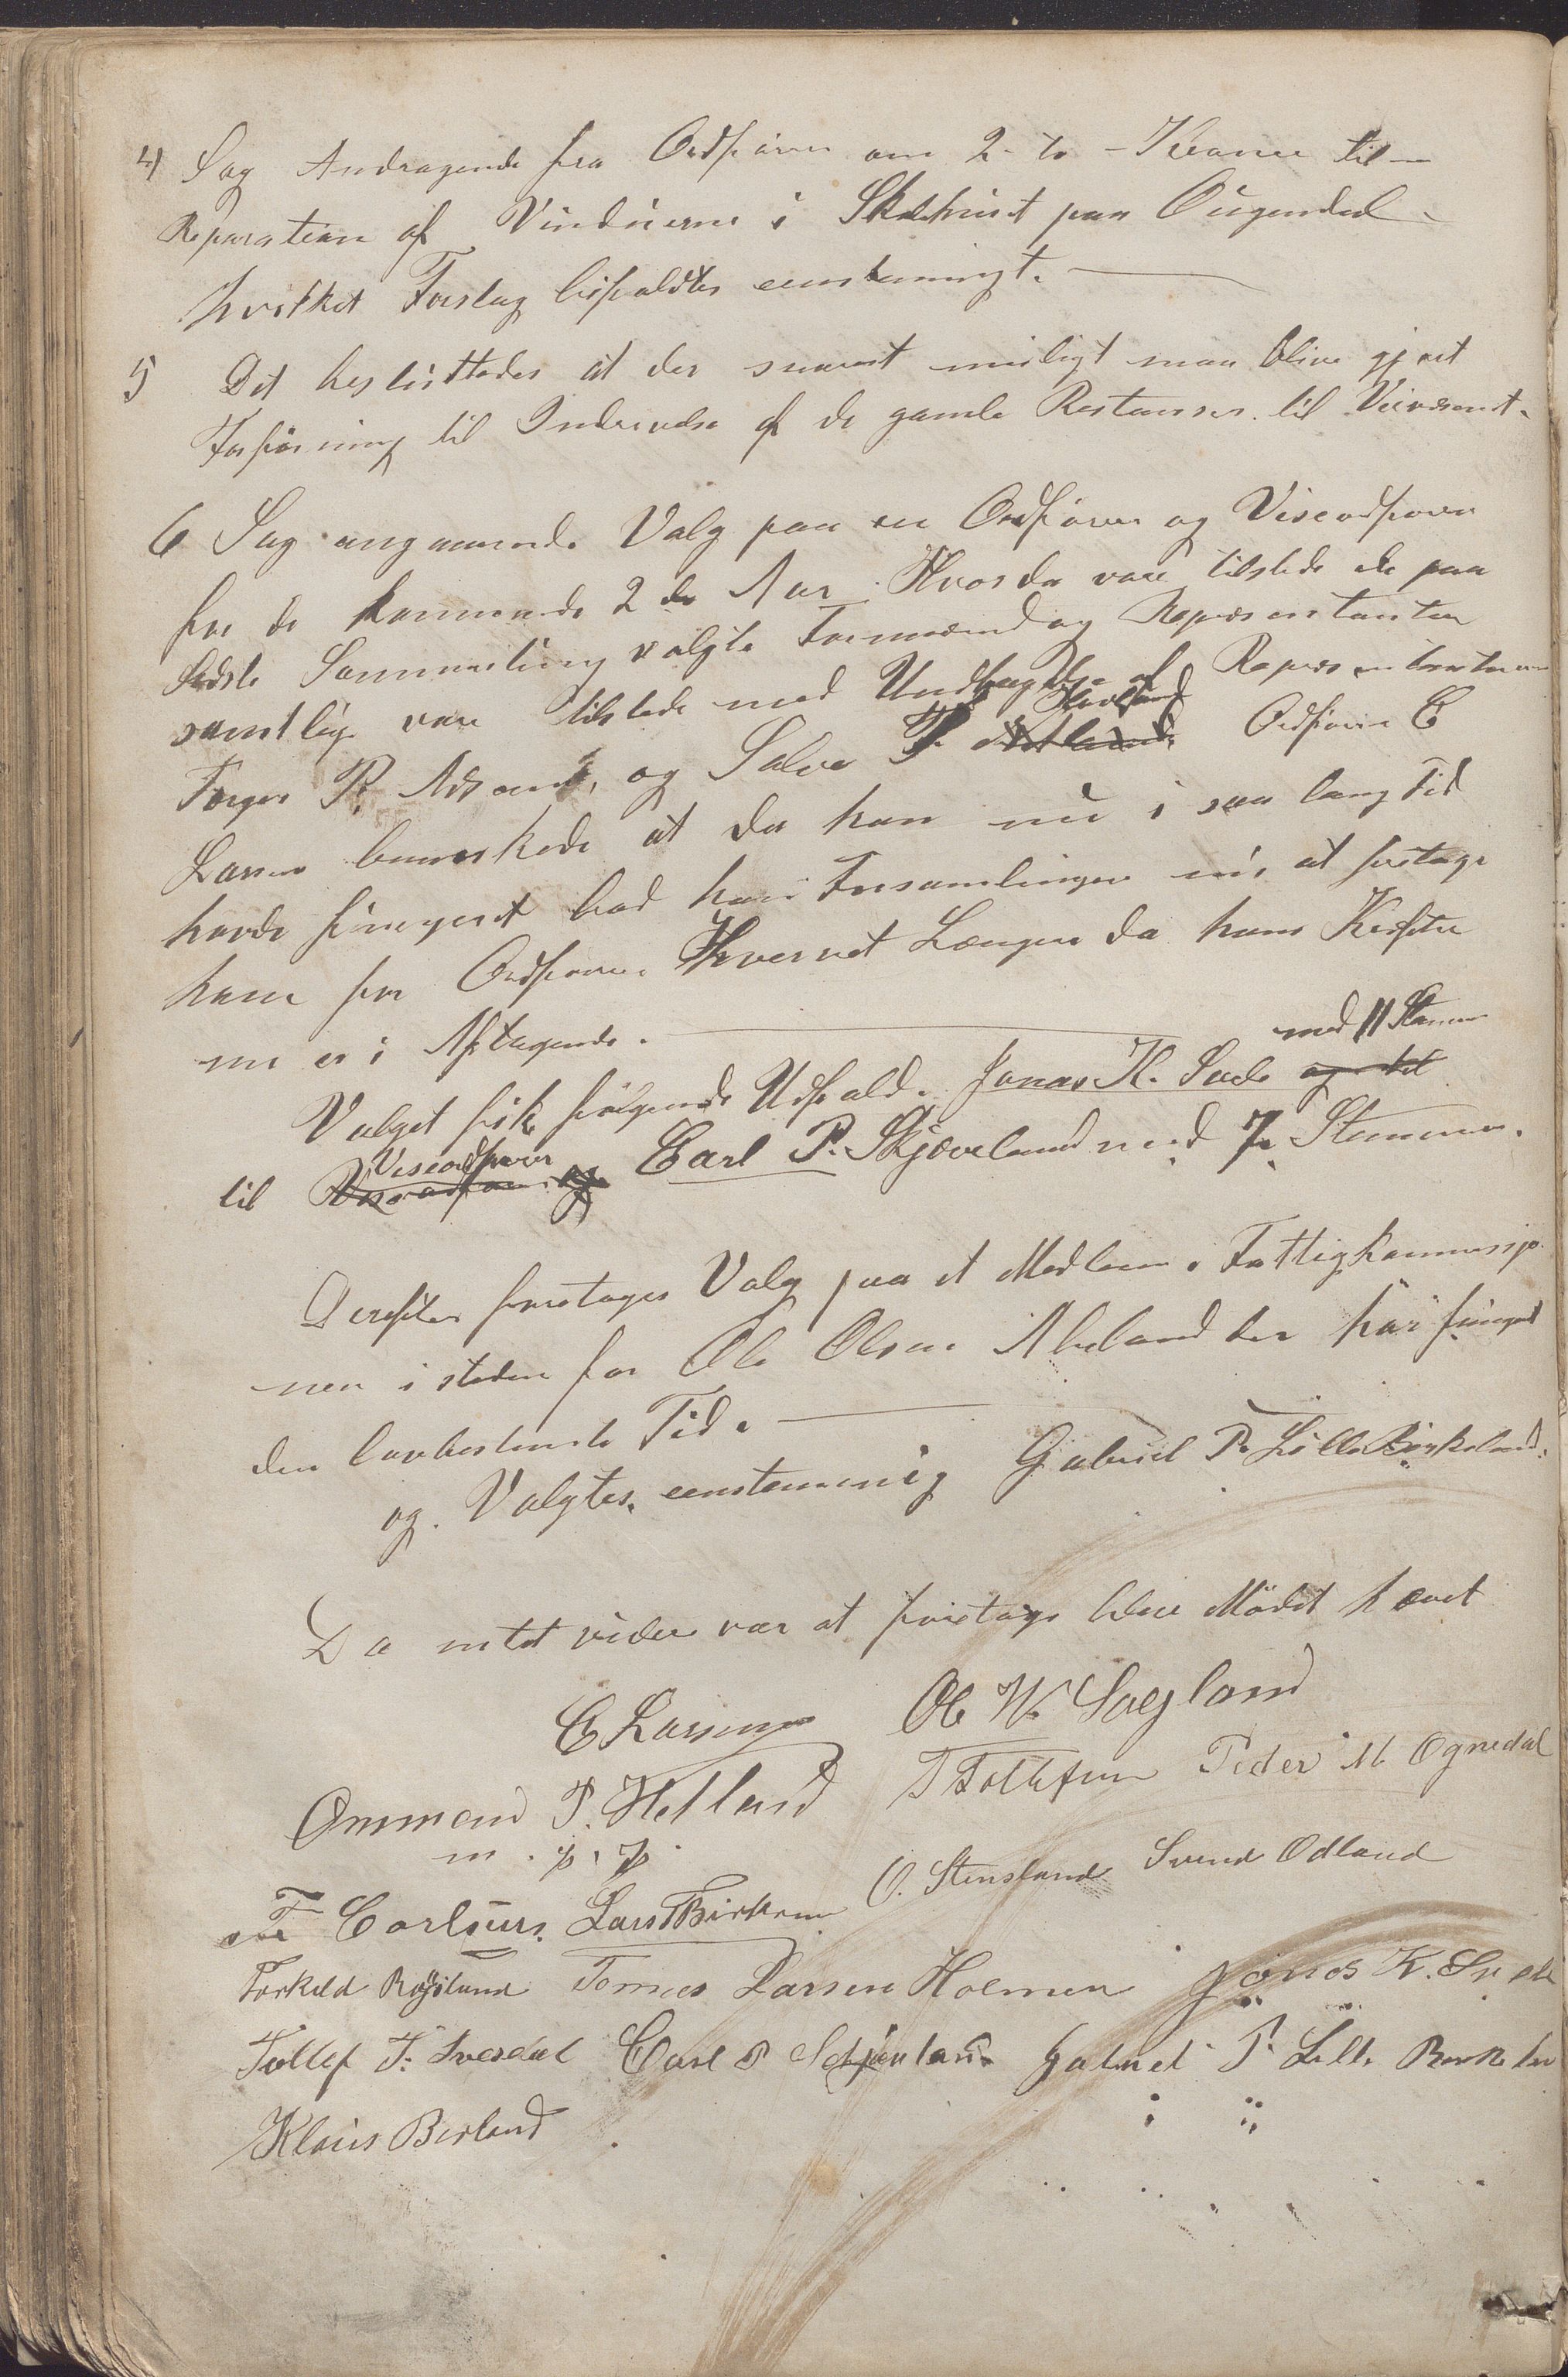 4) Sag Andragende fra Ordfører om 2 to Kroner til
Reparation af Vinduerne i Skolehuset paa Øigendal
hvilket Forslag bifaldtes eenstemmigt.
5 Det besluttedes at der snarest muligt maa blive gjort
Forføining til Inddrivelse af de gamle Restanser til Veivæsenet.
6 Sag angaaende Valg paa en Ordfører og Viseordfører
for de kommende 2 de Aar. Hvor da vare tilstede de paa
sidste Sammenling valgte Formænd og Repræsentanter
samtlig vare tilstede med Undtagelse af Repræsentanterne
Torger P. og Salve P. Hetland Ordfører E
Larsen bemærkede at da han nu i saa lang Tid
havde fungeret bad han Forsamlingen om at forskaane
ham for Ordfører Hvervet Længere da hans Kræfter
nu er i Aftagende.
Valget fik følgende Udfald. Jonas K. Svele med 11 Stemmer
til Viseordfører Carl P. Skjæveland med 7 Stemmer.
Derefter foretages Valg paa et Medlem i Fattigkommissjo
nen i steden for Ole Olsen Abeland der har fungeret
den lovbestemte Tid.
og Valgtes eenstemmig Gabriel P. Lille Birkeland.
Da intet videre var at foretage blev Mødet hævet
E Larsen Ole W. Sægland
Ommund P. Hetland T Tollefsen Peder M Ognedal
m. p. p.
T Carlsen Lars T Birkrem O. Stensland Svend Odland
Torkild Røysland Tomas Larsen Holmen Jonas K. Svele
Tollef T. Svesdal Carl P Schjæveland Gabriel P. Lille Birkelan
Klaus Berland